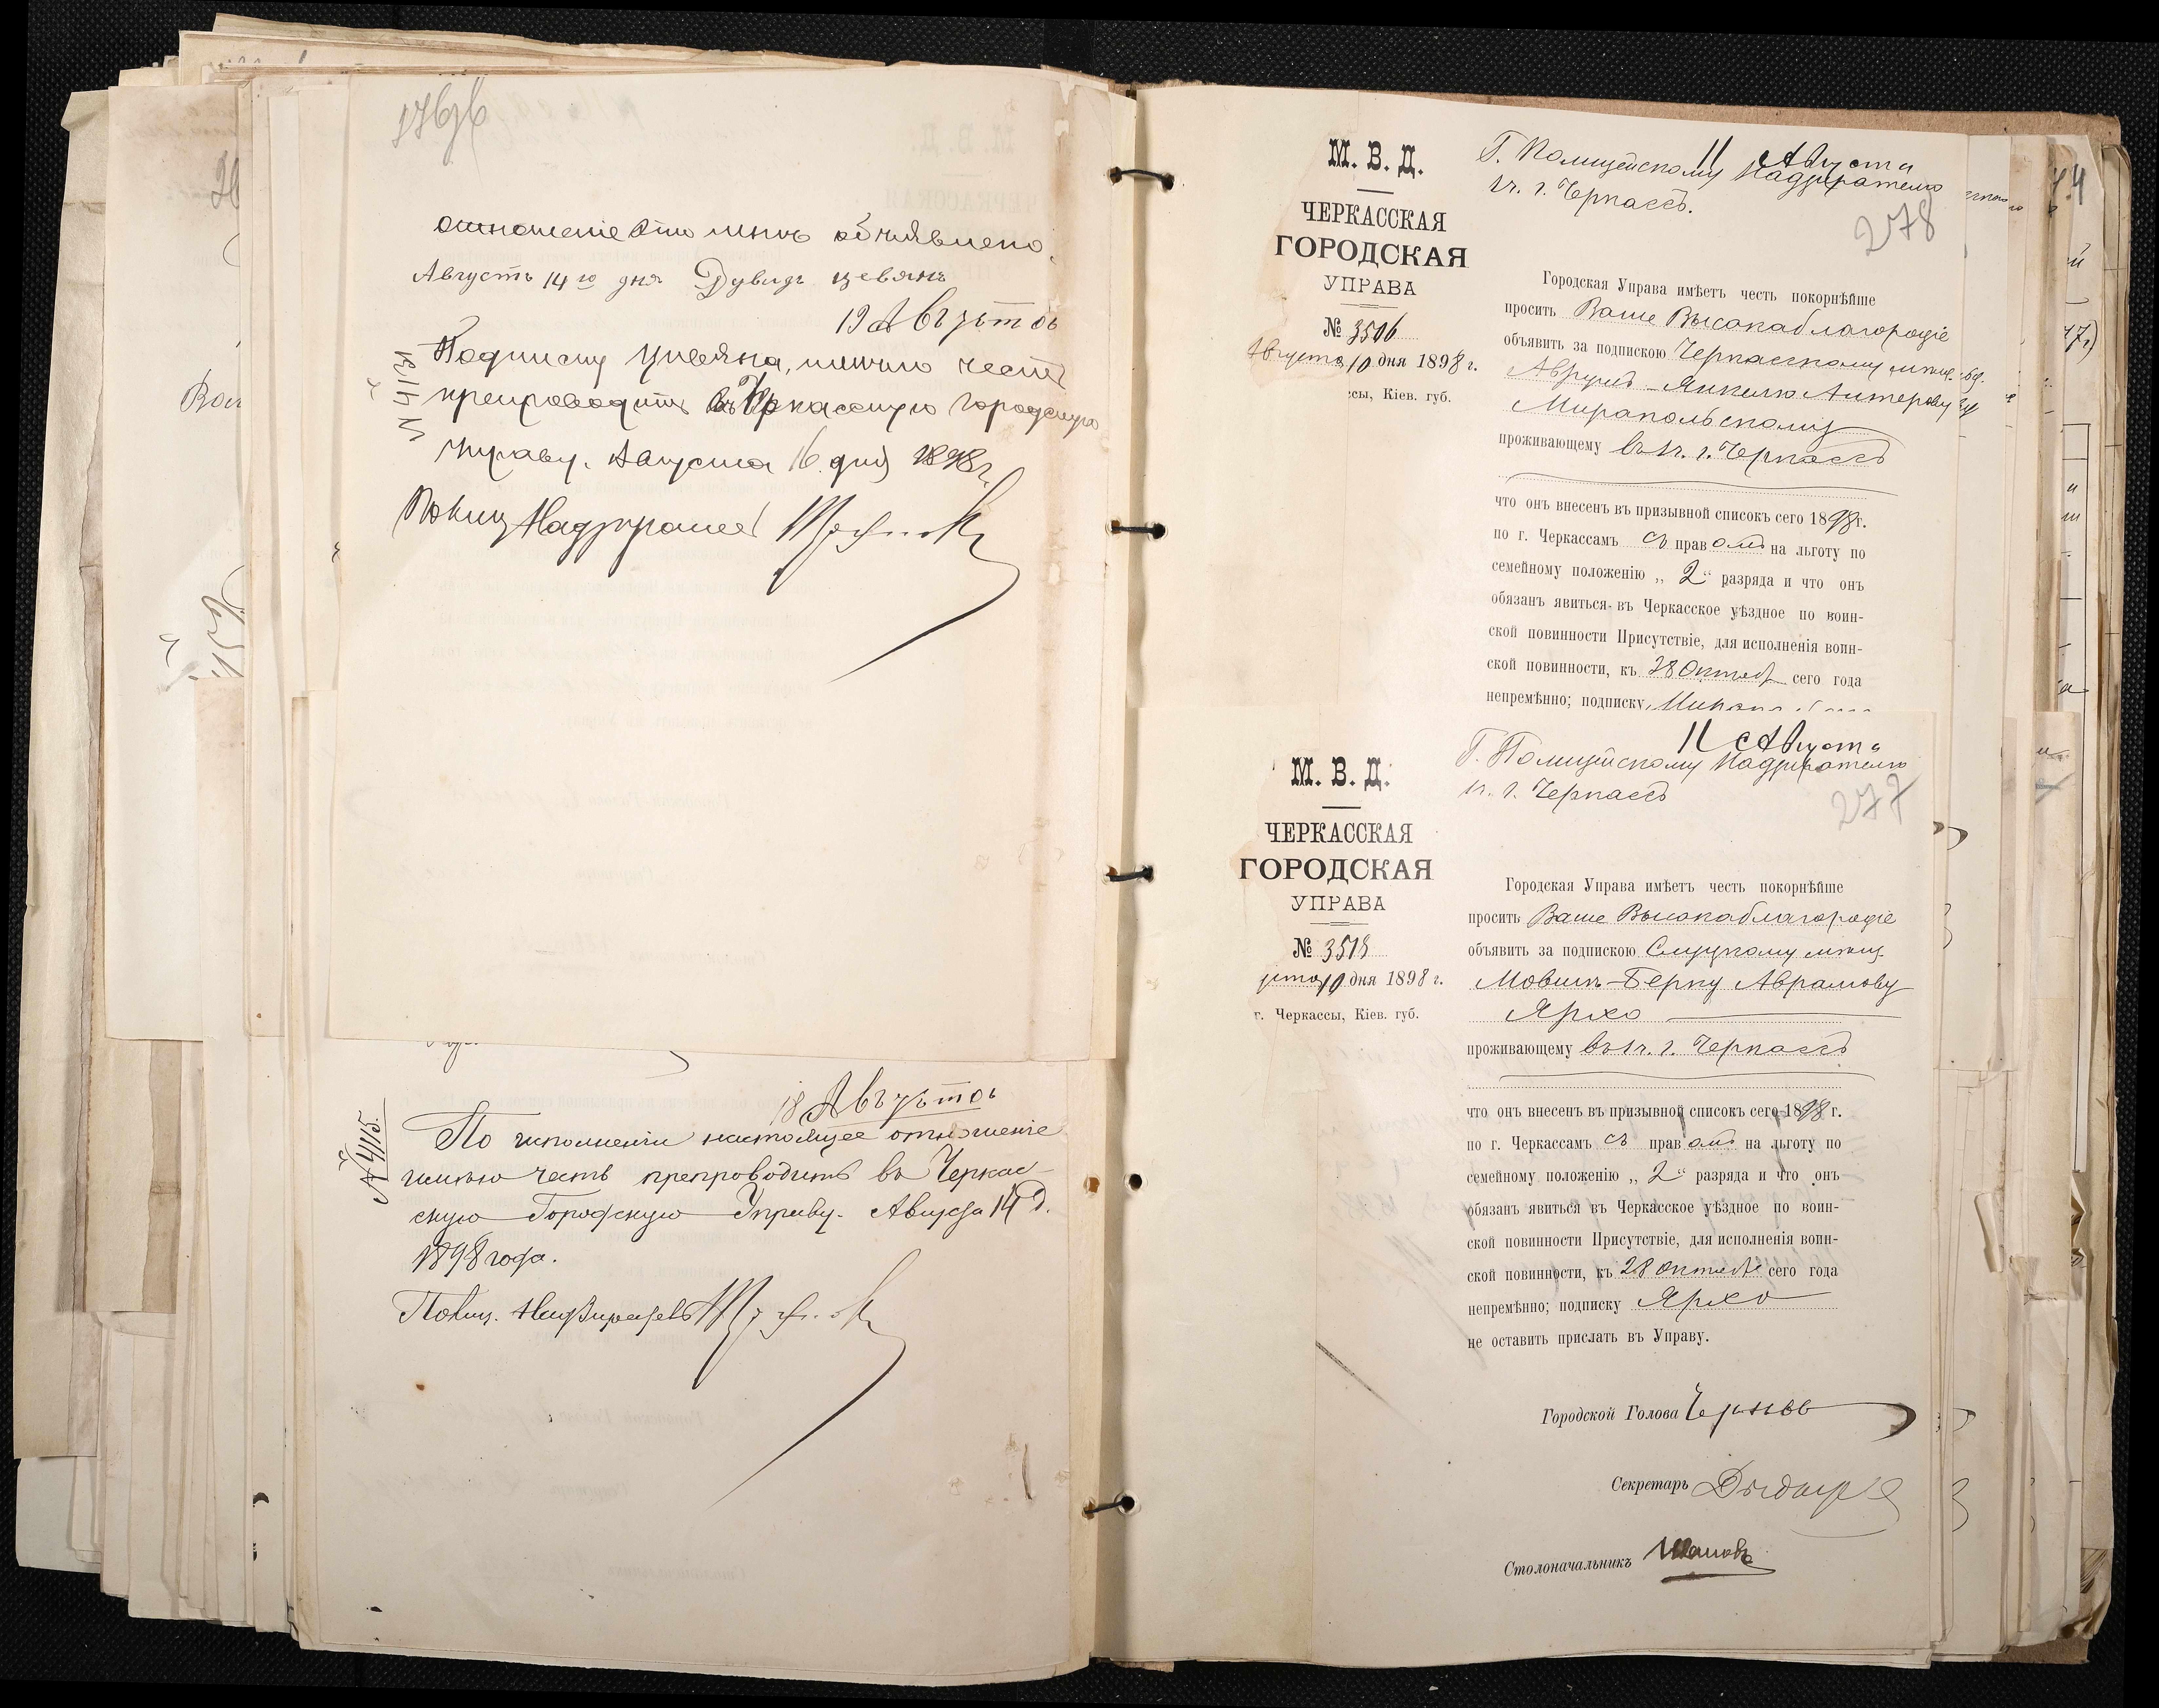 276об
отношеніе это мнѣ объявлено.
Августъ 14 го дня Дувидъ
19 Августа
№ 4113
Подписку имѣю честь
препроводить въ Черкасскую Городскую
Управу. Августа 16 дня 1898 г.
Полиц Надзиратель
18 Августа
№ 4115.
По исполненіи настоящее отношеніе
имѣю честь препроводить въ Черкас-
скую Городскую Управу. Августа 14 д.
1898 года.
Полиц. Надзиратель
М. В. Д.
ЧЕРКАССКАЯ
ГОРОДСКАЯ
УПРАВА
№ 3506
Августа 10 дня 1898 г.
ссы, Кіев. губ.
11 Августа
Г. Полицейскому Надзирателю
1 ч. г. Черкассъ.
278
Городская Управа имѣетъ честь покорнѣйше
просить Ваше Высокаблагородіе
объявить за подпискою Черкасскому мѣщ.
Аврумъ-Янкелю Литерову
Мирапольскому
проживающему въ 1 ч. г. Черкассъ
что онъ внесенъ въ призывной списокъ сего 1898 г.
по г. Черкассамъ съ правомъ на льготу по
семейному положенію „2“ разряда и что онъ
обязанъ явиться въ Черкасское уѣздное по воин-
ской повинности Присутствіе, для исполненія воин-
ской повинности, къ 28 Октяб сего года
непремѣнно; подписку
М. В. Д.
ЧЕРКАССКАЯ
ГОРОДСКАЯ
УПРАВА
№ 3518
уста 10 дня 1898 г.
г. Черкассы, Кіев. губ.
11 Августа
Г. Полицейскому Надзирателю
1 ч. г. Черкассъ
277
Городская Управа имѣетъ честь покорнѣйше
просить Ваше Высокаблагородіе
объявить за подпискою Слуцкому мѣщ.
Мовшѣ-Берку Аврамову
Ярхо
проживающему въ 1 ч. г. Черкассъ
что онъ внесенъ въ призывной списокъ сего 1898 г.
по г. Черкассамъ съ правомъ на льготу по
семейному положенію „2“ разряда и что онъ
обязанъ явиться въ Черкасское уѣздное по воин-
ской повинности Присутствіе, для исполненія воин-
ской повинности, къ 28 Октяб сего года
непремѣнно; подписку Ярхо
не оставить прислать въ Управу.
Городской Голова
Секретарь
Столоначальникъ